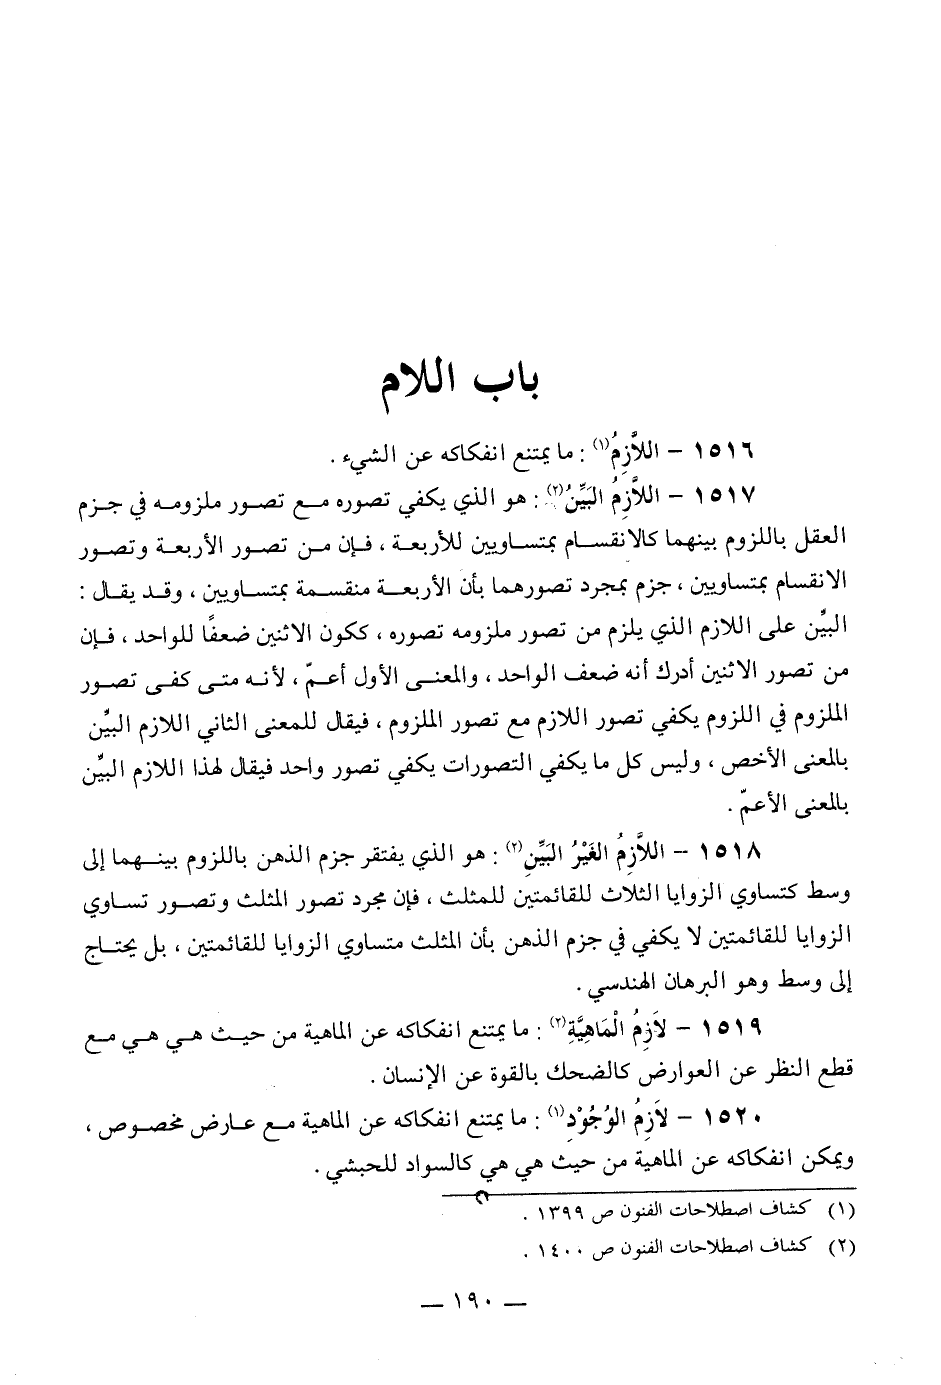 باب اللام
١٥١٦ - اللاَّزِمُ(١) : ما يمتنع انفكاكه عن الشيء .
١٥١٧ - اللاَّزِمُ البَيِّنُ(٢) : هو الذي يكفي تصوره مع تصور ملزومه في جزم
العقل باللزوم بينهما كالانقسام بمتساويين للأربعة ، فإن من تصور الأربعة وتصور
الانقسام بمتساويين ، جزم بمجرد تصورهما بأن الأربعة منقسمة بمتساويين ، وقد يقال :
البيِّن على اللازم الذي يلزم من تصور ملزومه تصوره ، ككون الاثنين ضعفًا للواحد ، فإن
من تصور الاثنين أدرك أنه ضعف الواحد ، والمعنى الأول أعمّ ، لأنه متى كفى تصور
الملزوم في اللزوم يكفي تصور اللازم مع تصور الملزوم ، فيقال للمعنى الثاني اللازم البيِّن
بالمعنى الأخص ، وليس كل ما يكفي التصورات يكفي تصور واحد فيقال لهذا اللازم البيِّن
بالمعنى الأعمّ .
١٥١٨ - اللاَّزِمُ الغَيْرُ البَيِّنِ(٢) : هو الذي يفتقر جزم الذهن باللزوم بينهما إلى
وسط كتساوي الزوايا الثلاث للقائمتين للمثلث ، فإن مجرد تصور المثلث وتصور تساوي
الزوايا للقائمتين لا يكفي في جزم الذهن بأن المثلث متساوي الزوايا للقائمتين ، بل يحتاج
إلى وسط وهو البرهان الهندسي .
١٥١٩ - لاَزِمُ الْمَاهِيَّةِ(٢) : ما يمتنع انفكاكه عن الماهية من حيث هي هي مع
قطع النظر عن العوارض كالضحك بالقوة عن الإنسان .
١٥٢٠ - لاَزِمُ الوُجُوْدِ(١) : ما يمتنع انفكاكه عن الماهية مع عارض مخصوص ،
ويمكن انفكاكه عن الماهية من حيث هي هي كالسواد للحبشي .
(١) كشاف اصطلاحات الفنون ص ١٣٩٩ .
(٢) كشاف اصطلاحات الفنون ص ١٤٠٠ .
— ١٩٠ —